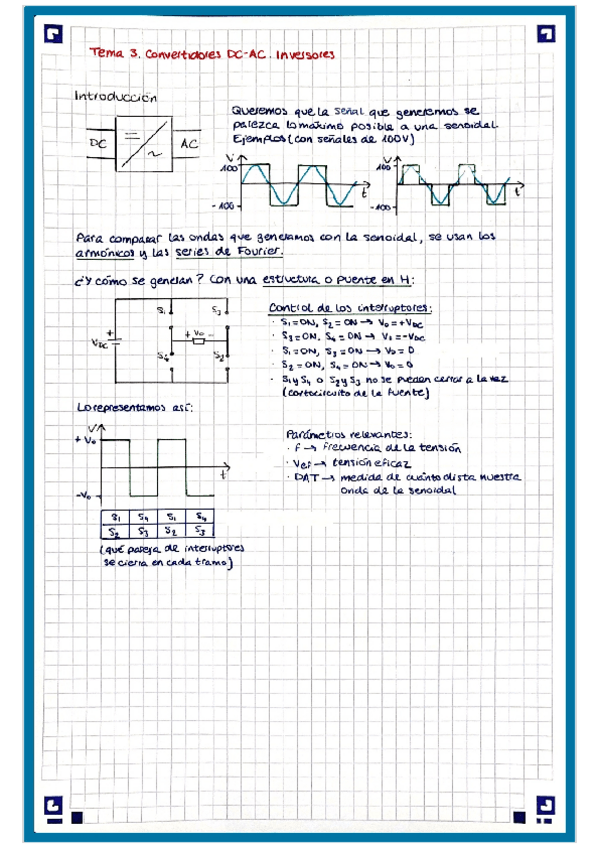 Tema 3. Convertidores DC-AC. Inversores
Introducción
DC
AC
Queremos que la señal que generemos se
parezca lo máximo posible a una senoidal
Ejemplos (con señales de 100V)
V
100
-100
t
V
100
-100
t
Para comparar las ondas que generamos con la senoidal, se usan los
armónicos y las series de Fourier.
¿Y cómo se generan? Con una estructura o puente en H:
VDC
+
S1
S3
+ Vo -
S4
S2
Control de los interruptores:
· S1=ON, S2=ON → Vo=+VDC
· S3=ON, S4=ON → Vo=-VDC
· S1=ON, S3=ON → Vo=0
· S2=ON, S4=ON → Vo=0
· S1 y S4 o S2 y S3 no se pueden cerrar a la vez
(cortocircuito de la fuente)
Lo representamos así:
V
+Vo
-Vo
t
S1 S4 S1 S4
S2 S3 S2 S3
(qué pareja de interruptores
se cierra en cada tramo)
Parámetros relevantes:
· f → frecuencia de la tensión
· Vef → tensión eficaz
· DAT → medida de cuánto dista nuestra
onda de la senoidal